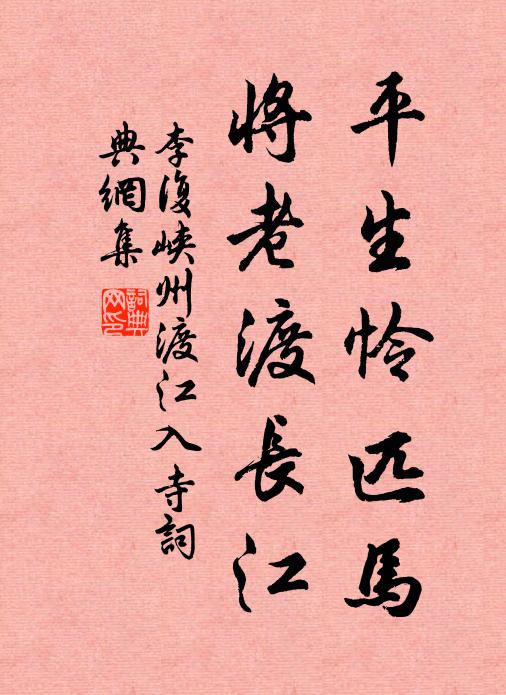 平生怜匹馬
將老渡長江
李復峽州渡江入寺詞
典網集
詞典
网印